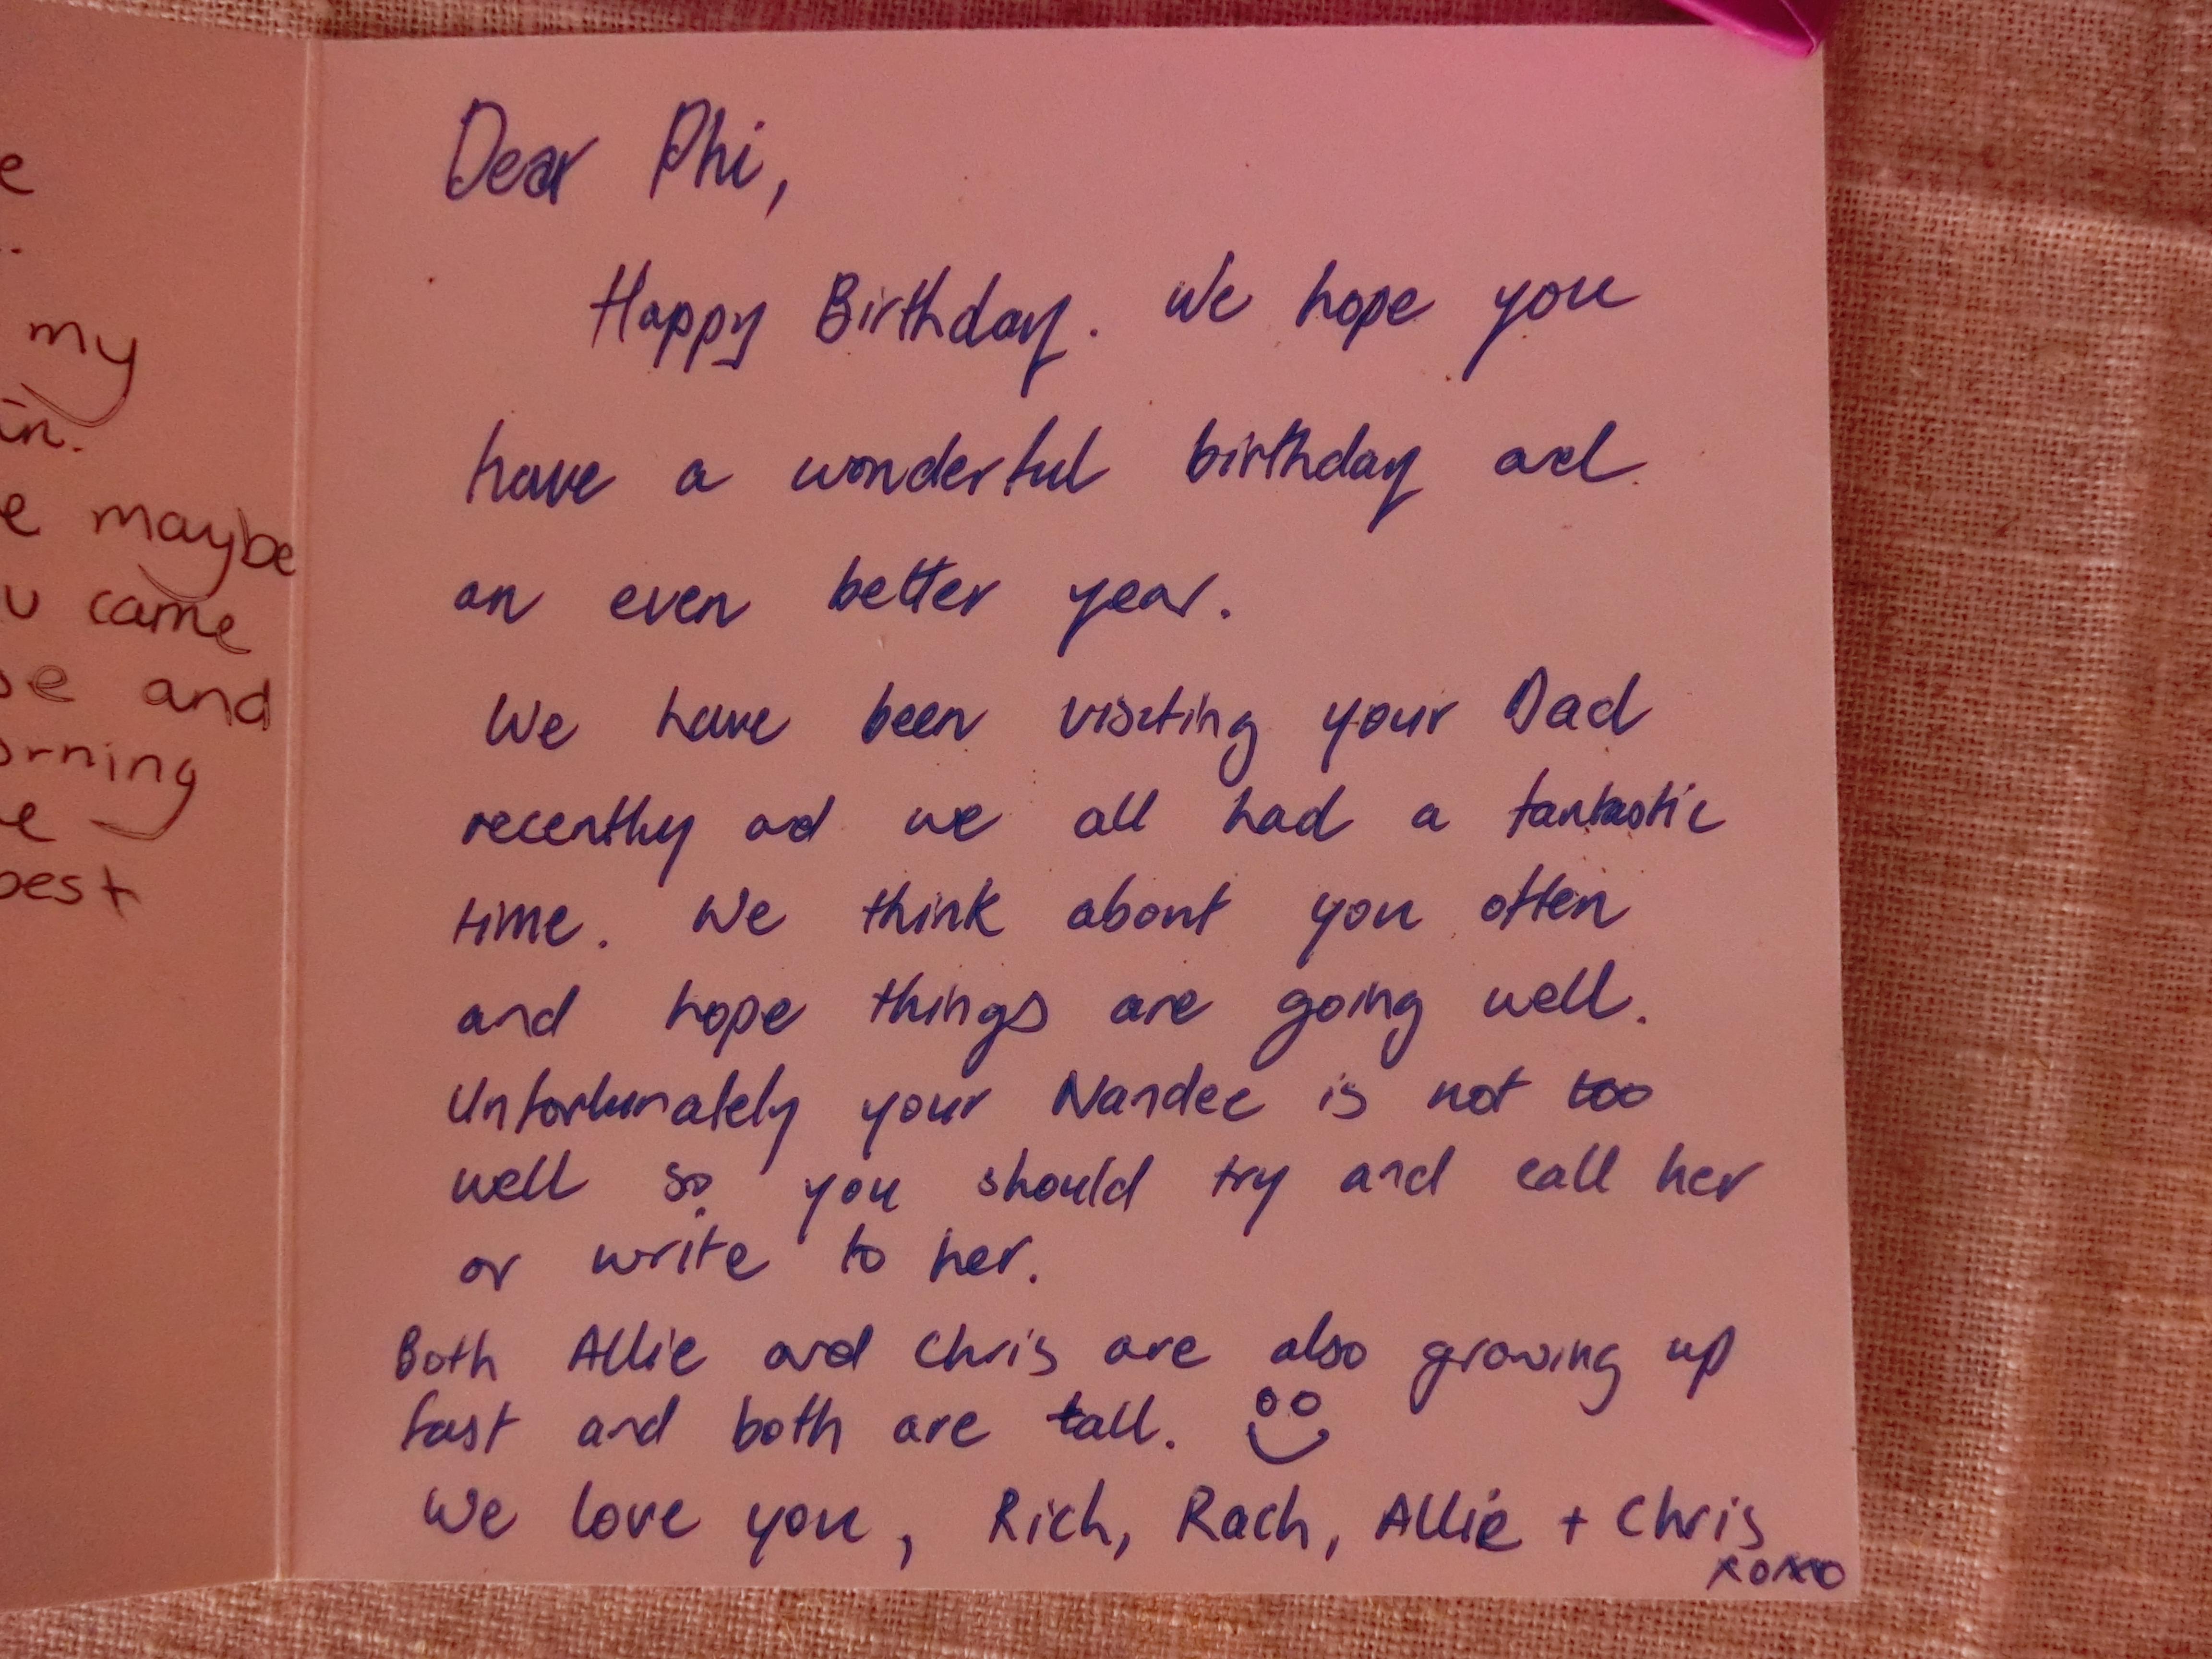 e
my
in.
e maybe
u came
se and
orning
e
best
Dear Phi,
Happy Birthday. We hope you
have a wonderful birthday ad
an even better year.
We have been visiting your Dad
recently ad we all had a fantastic
time. We think about you often
and hope things are going well.
Unfortunately your Nandee is not too
well so you should try and call her
or write to her.
Both Allie and Chris are also growing up
fast and both are tall.
We love you, Rich, Rach, Allie + Chris
xoxo